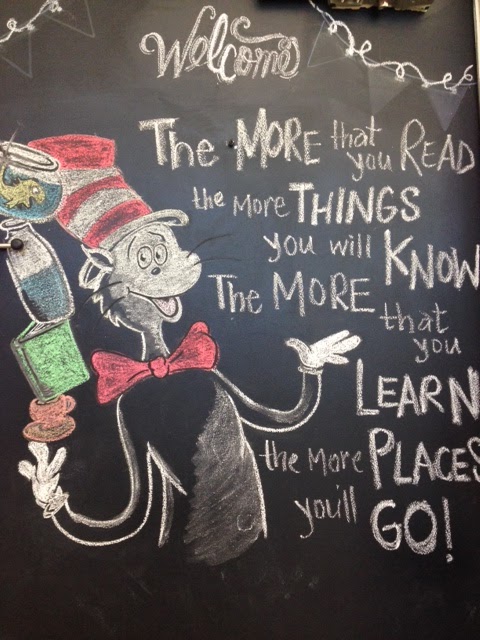 Welcome
The MORE that you READ
the More THINGS
you will KNOW
The MORE that you
LEARN
the More PLACES
you'll GO!